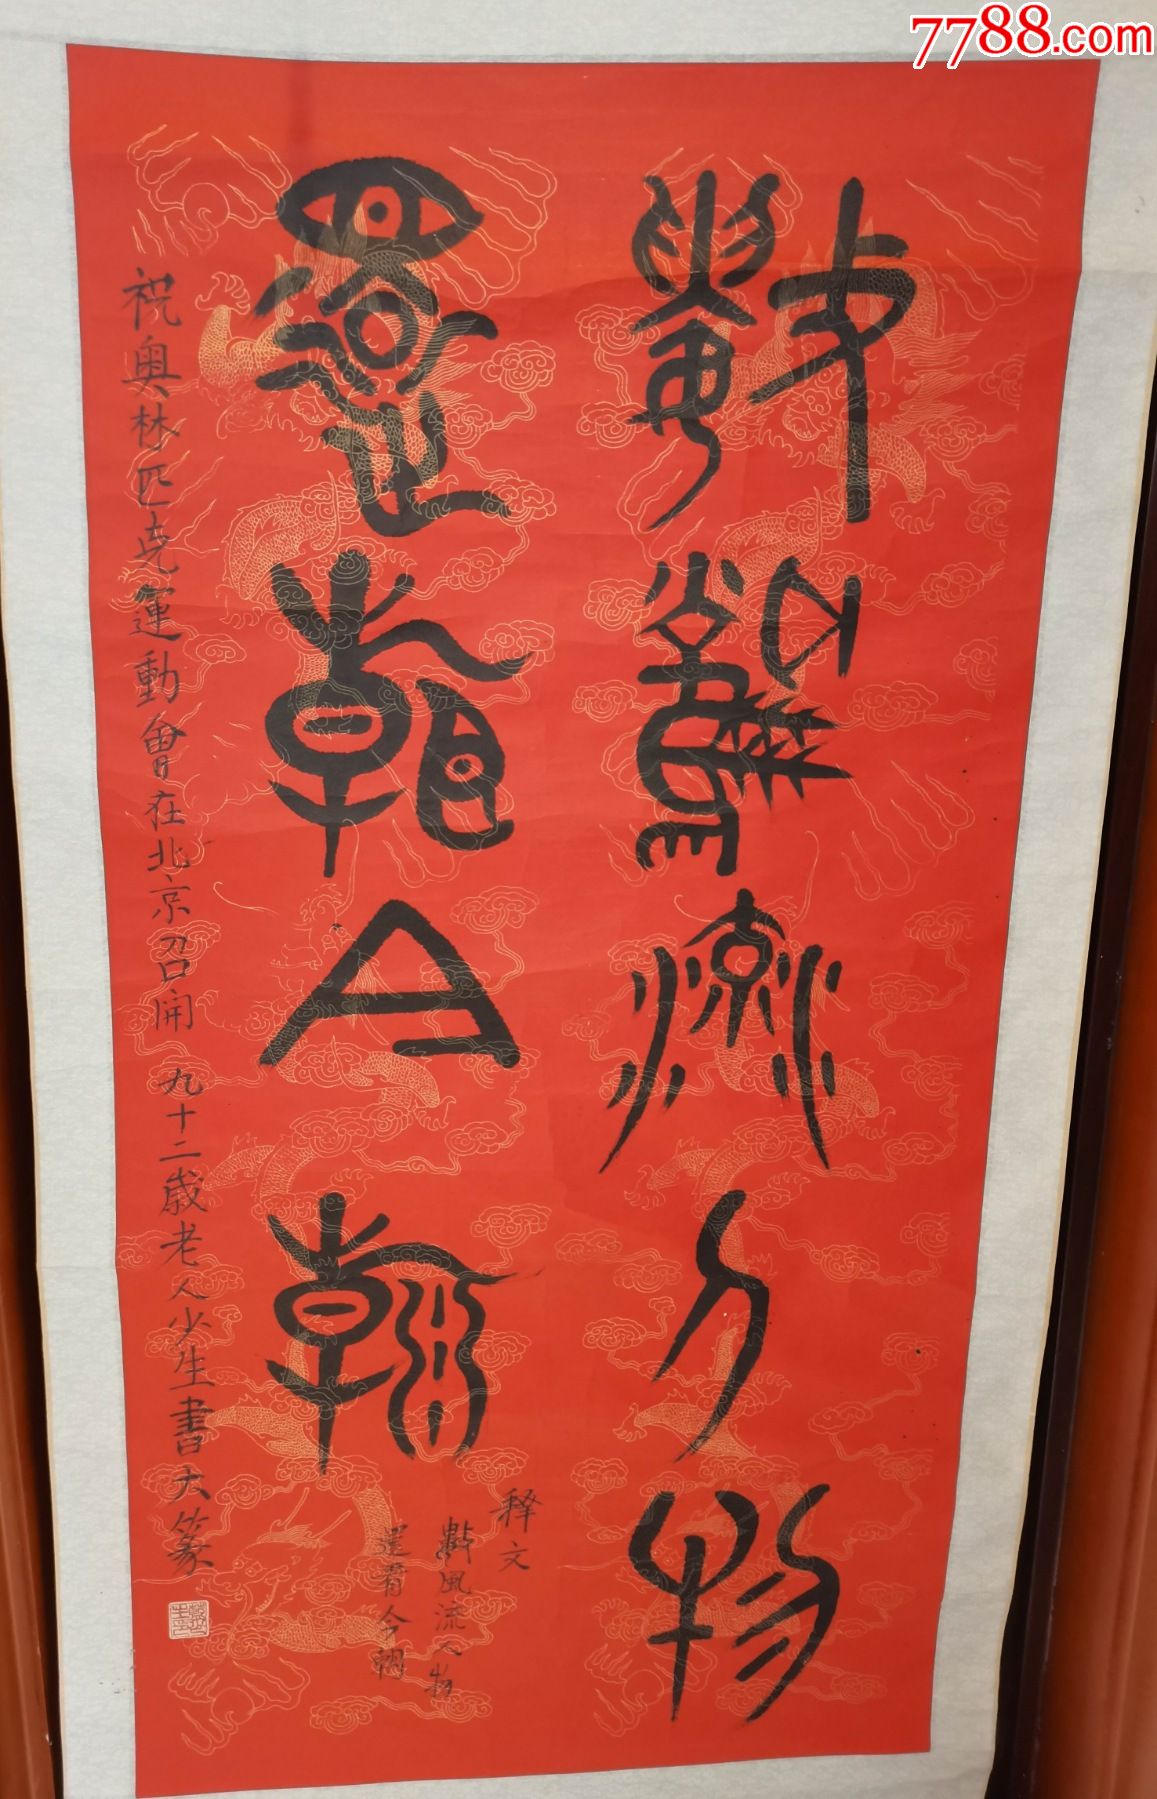 7788.com
數風流人物
還看今朝
释文
數風流人物
還看今朝
祝奥林匹克運動會在北京召開 九十二歲老人少生書大篆